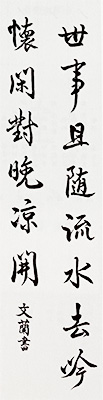 世事且随流水去吟
懷閑對晚凉開
文蘭書